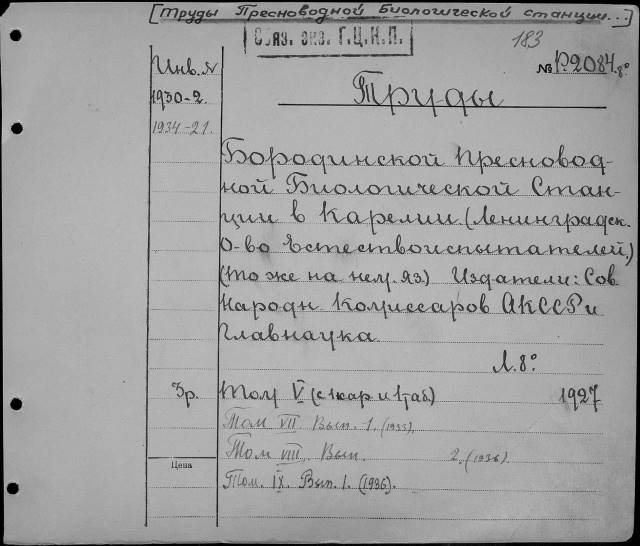 [Труды Пресноводной Биологической станции...]
Обяз. экз. Г.Ц.К.П.
183
Инв. №
№ Р2084.8°
1930-2.
Труды
1934-21.
Бородинской Пресновод-
ной Биологической Стан-
ции в Карелии (Ленинградск.
О-во Естествоиспытателей)
(то же на нем. яз.) Издатели: Сов
Народн Комиссаров АКССР и
Главнаука
Л. 8°
3р. Том V (с 1 кар. и 1 таб) 1927
Том VII. Вып. 1. (1933).
Том VIII. Вып. 2. (1936).
Цена
Том. IX. Вып. 1. (1936).